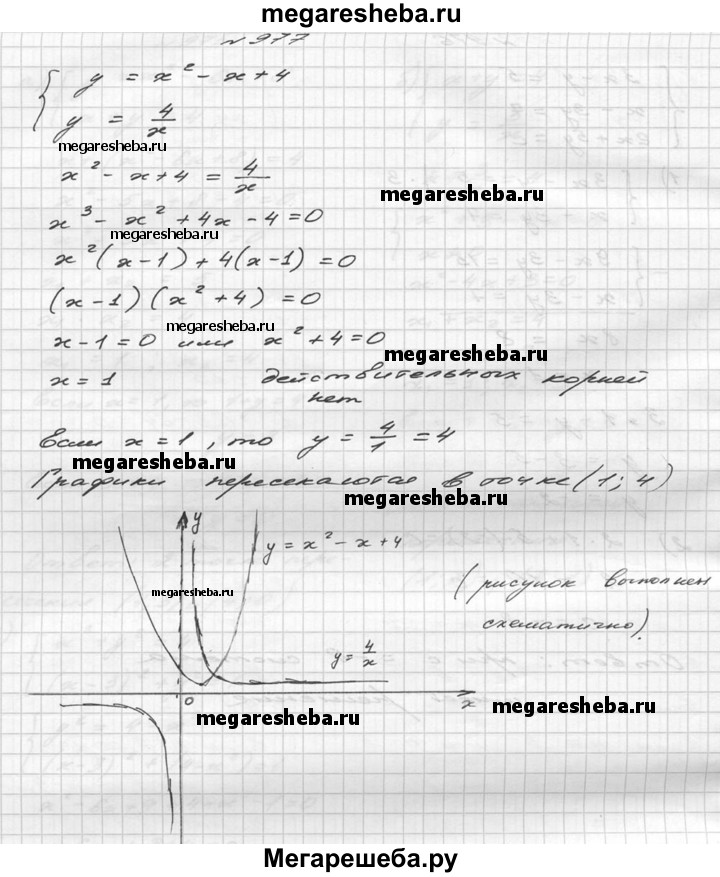 megaresheba.ru
№ 977
y = x² - x + 4
y = 4/x
megaresheba.ru
x² - x + 4 = 4/x
megaresheba.ru
x³ - x² + 4x - 4 = 0
megaresheba.ru
x²(x-1) + 4(x-1) = 0
(x-1)(x²+4) = 0
megaresheba.ru
x-1=0 или x²+4=0
megaresheba.ru
x=1 действительных корней
нет
Если x=1, то y = 4/1 = 4
megaresheba.ru
Графики пересекаются в точке (1; 4)
megaresheba.ru
y
y = x² - x + 4
(рисунок выполнен
megaresheba.ru
схематично).
y = 4/x
0
x
megaresheba.ru
megaresheba.ru
Мегарешеба.ру